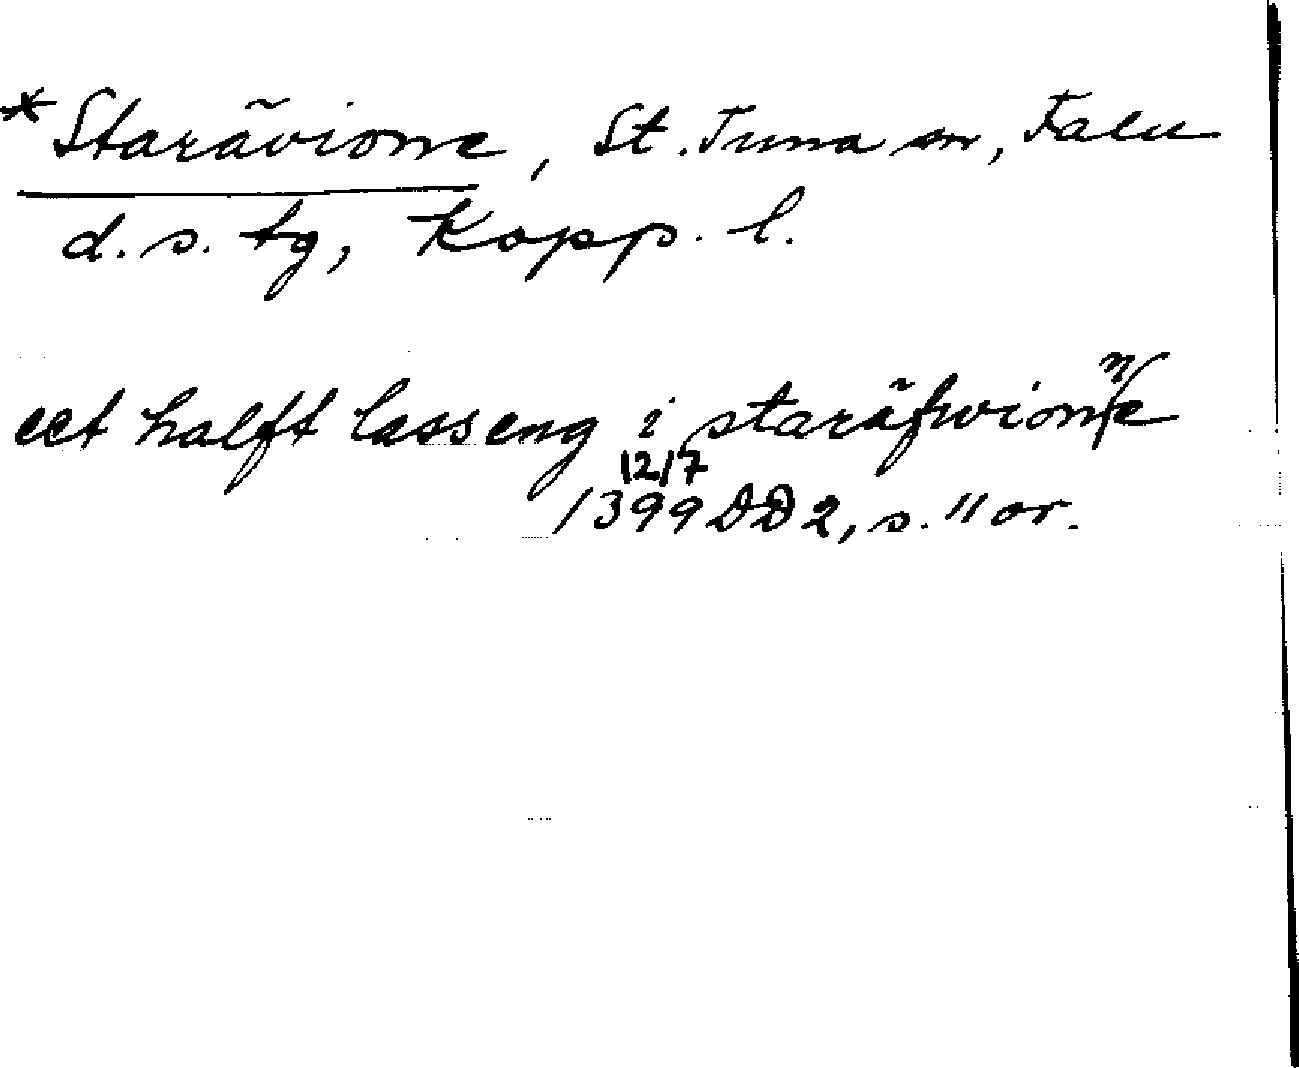 *Starävionne, St. Tuna sn, Falu
d. s. tg, Kopp. l.
eet halfft lasseng i staräfwionne
12/7
1399 DD 2, s. 11 or.